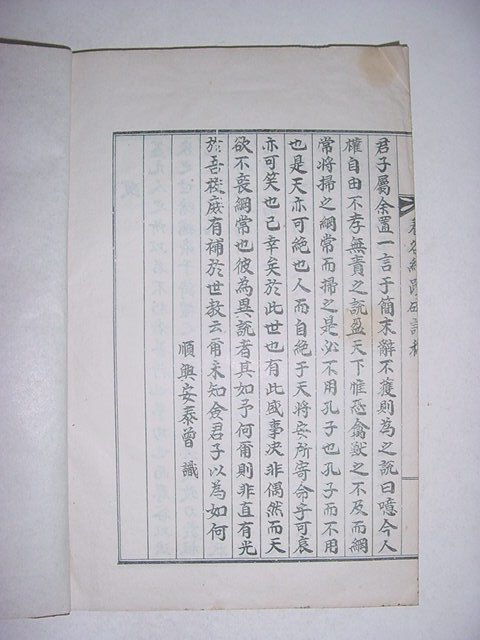 君子屬余置一言于簡末辭不獲則為之說曰噫今人
權自由不孝無責之說盈天下惟恐禽獸之不及而綱
常將掃之綱常而掃之是必不用孔子也孔子而不用
也是天亦可絶也人而自絶于天將安所寄命乎可哀
亦可笑也已幸矣於此世也有此盛事决非偶然而天
欲不喪綱常也彼為異說者其如予何爾則非直有光
於吾校庶有補於世教云爾未知僉君子以為如何
順興安泰曾識